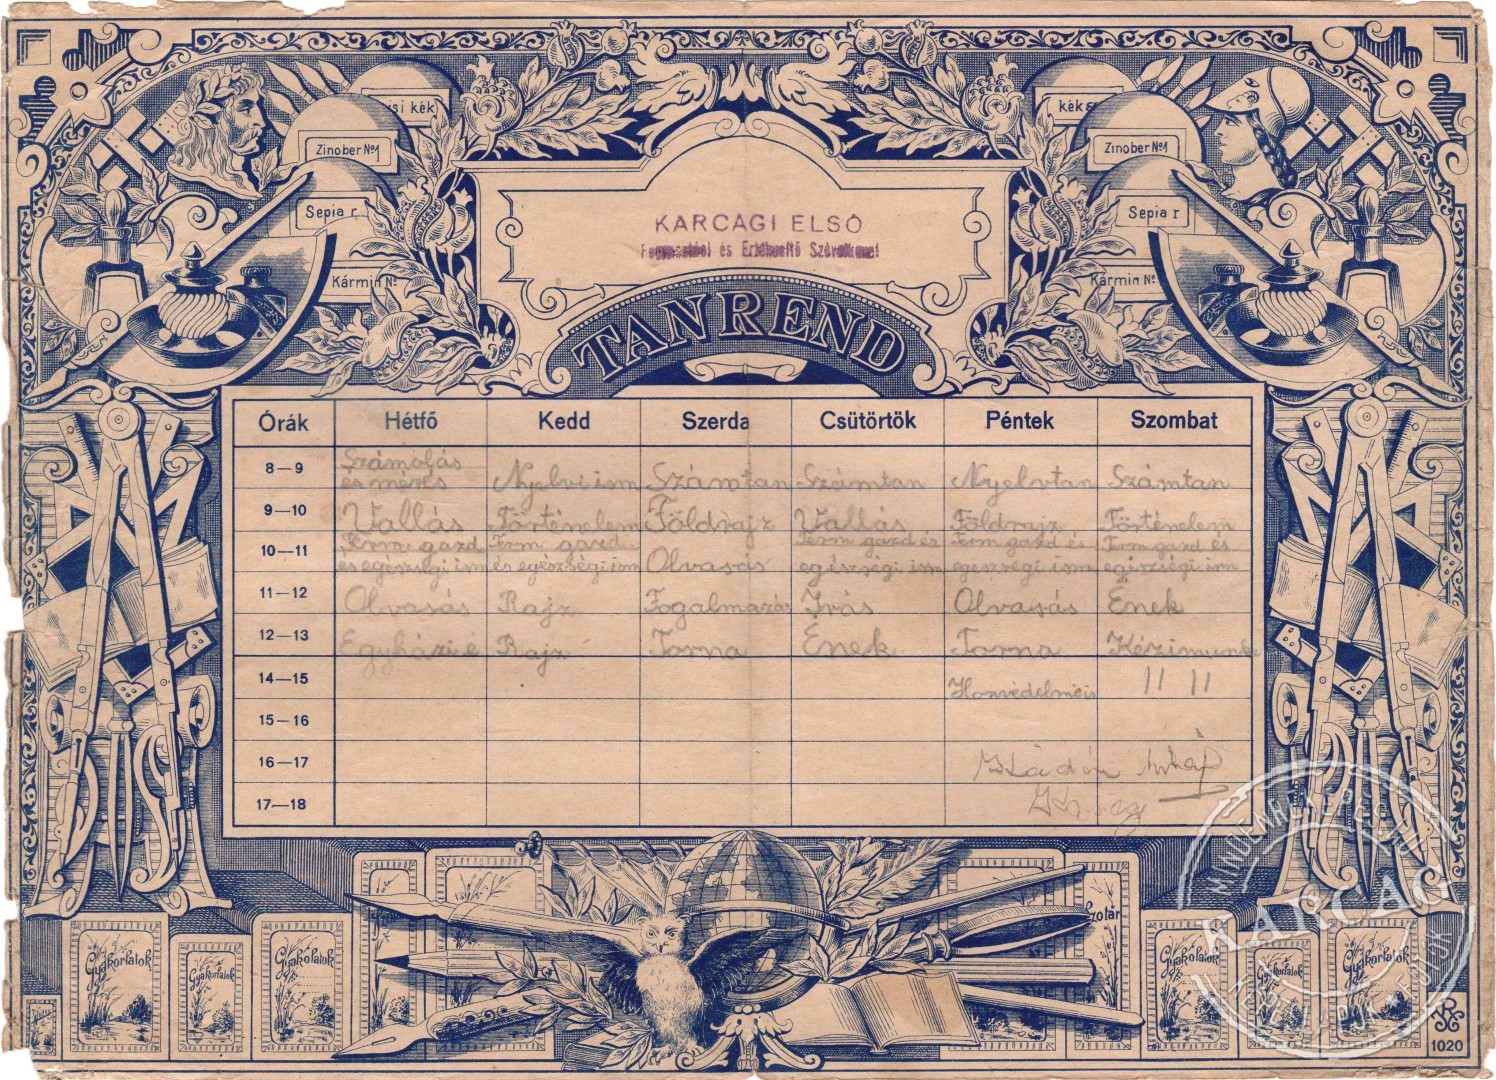 kék
Zinober №1
Sepia r
Kármin №
kék
Zinober №1
Sepia r
Kármin №
KARCAGI ELSŐ
és Értékesítő Szövetkezet
TANREND
Órák Hétfő Kedd Szerda Csütörtök Péntek Szombat
8—9 Számolás
és mérés Nyelvi ism Számtan Számtan Nyelvtan Számtan
9—10 Vallás Történelem Földrajz Vallás Földrajz Történelem
10—11 Term. gazd. Term. gazd. Term gazd és Term gazd és Term gazd és
és egészségi ism és egészségi ism Olvasás egészségi ism egészségi ism egészségi ism
11—12 Olvasás Rajz Fogalmazás Írás Olvasás Ének
12—13 Egyházi é Rajz Torna Ének Torna Kézimunka
14—15 Honvédelmi is 11 11
15—16
16—17
17—18
Gyakorlatok
Gyakorlatok
Gyakorlatok
Gyakorlatok
Gyakorlatok
Gyakorlatok
1020
KARCAG